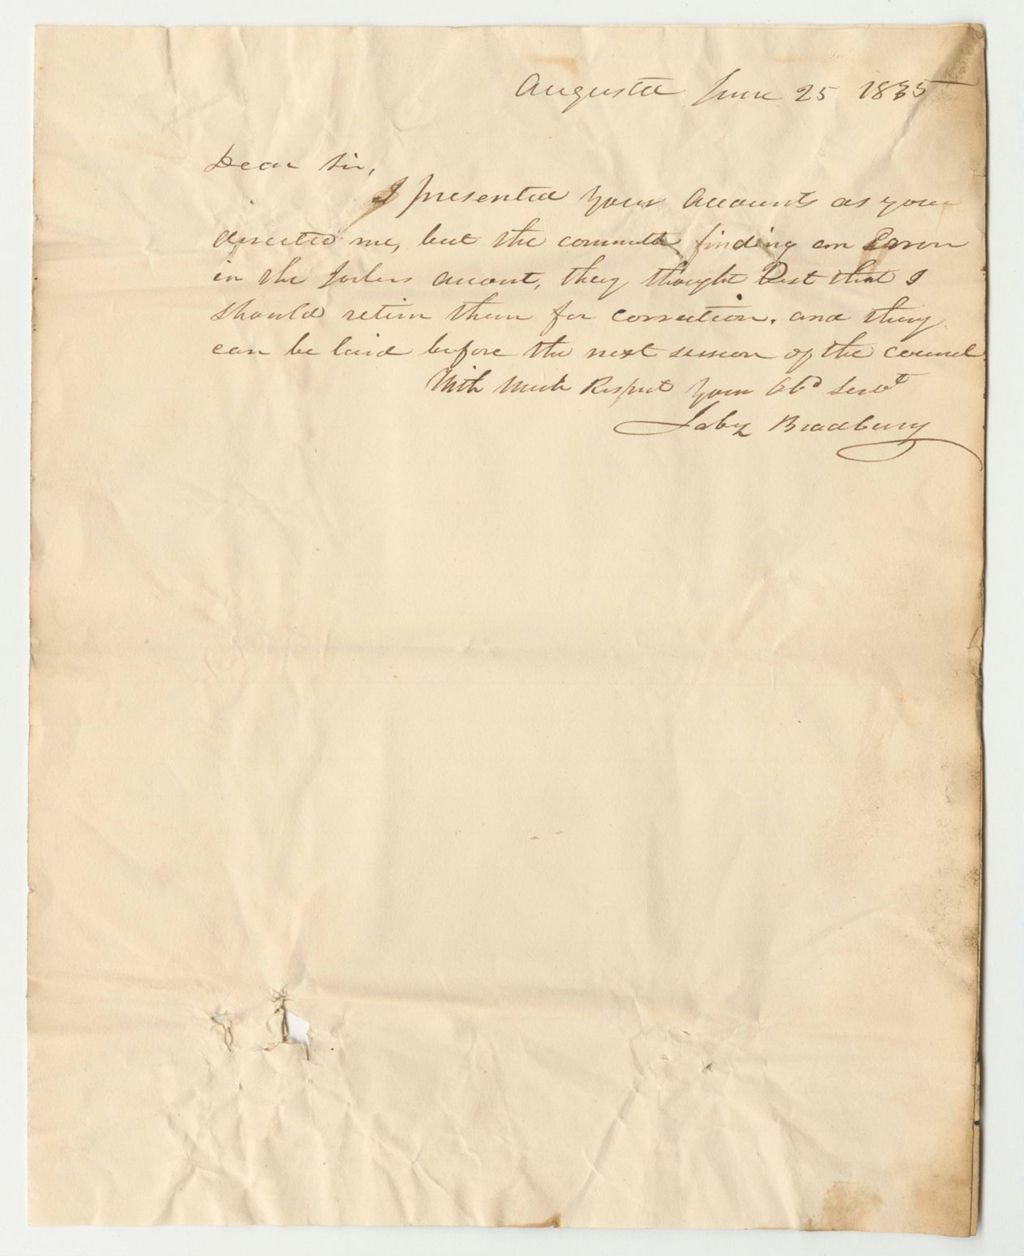 Augusta June 25 1835
Dear Sir,
I presented your accounts as you
directed me, but the committe finding an Error
in the Jailers account, they thought Best that I
should return them for correction, and they
can be laid before the next session of the council
With Much Respect your Obd Servt
Jabez Bradbury